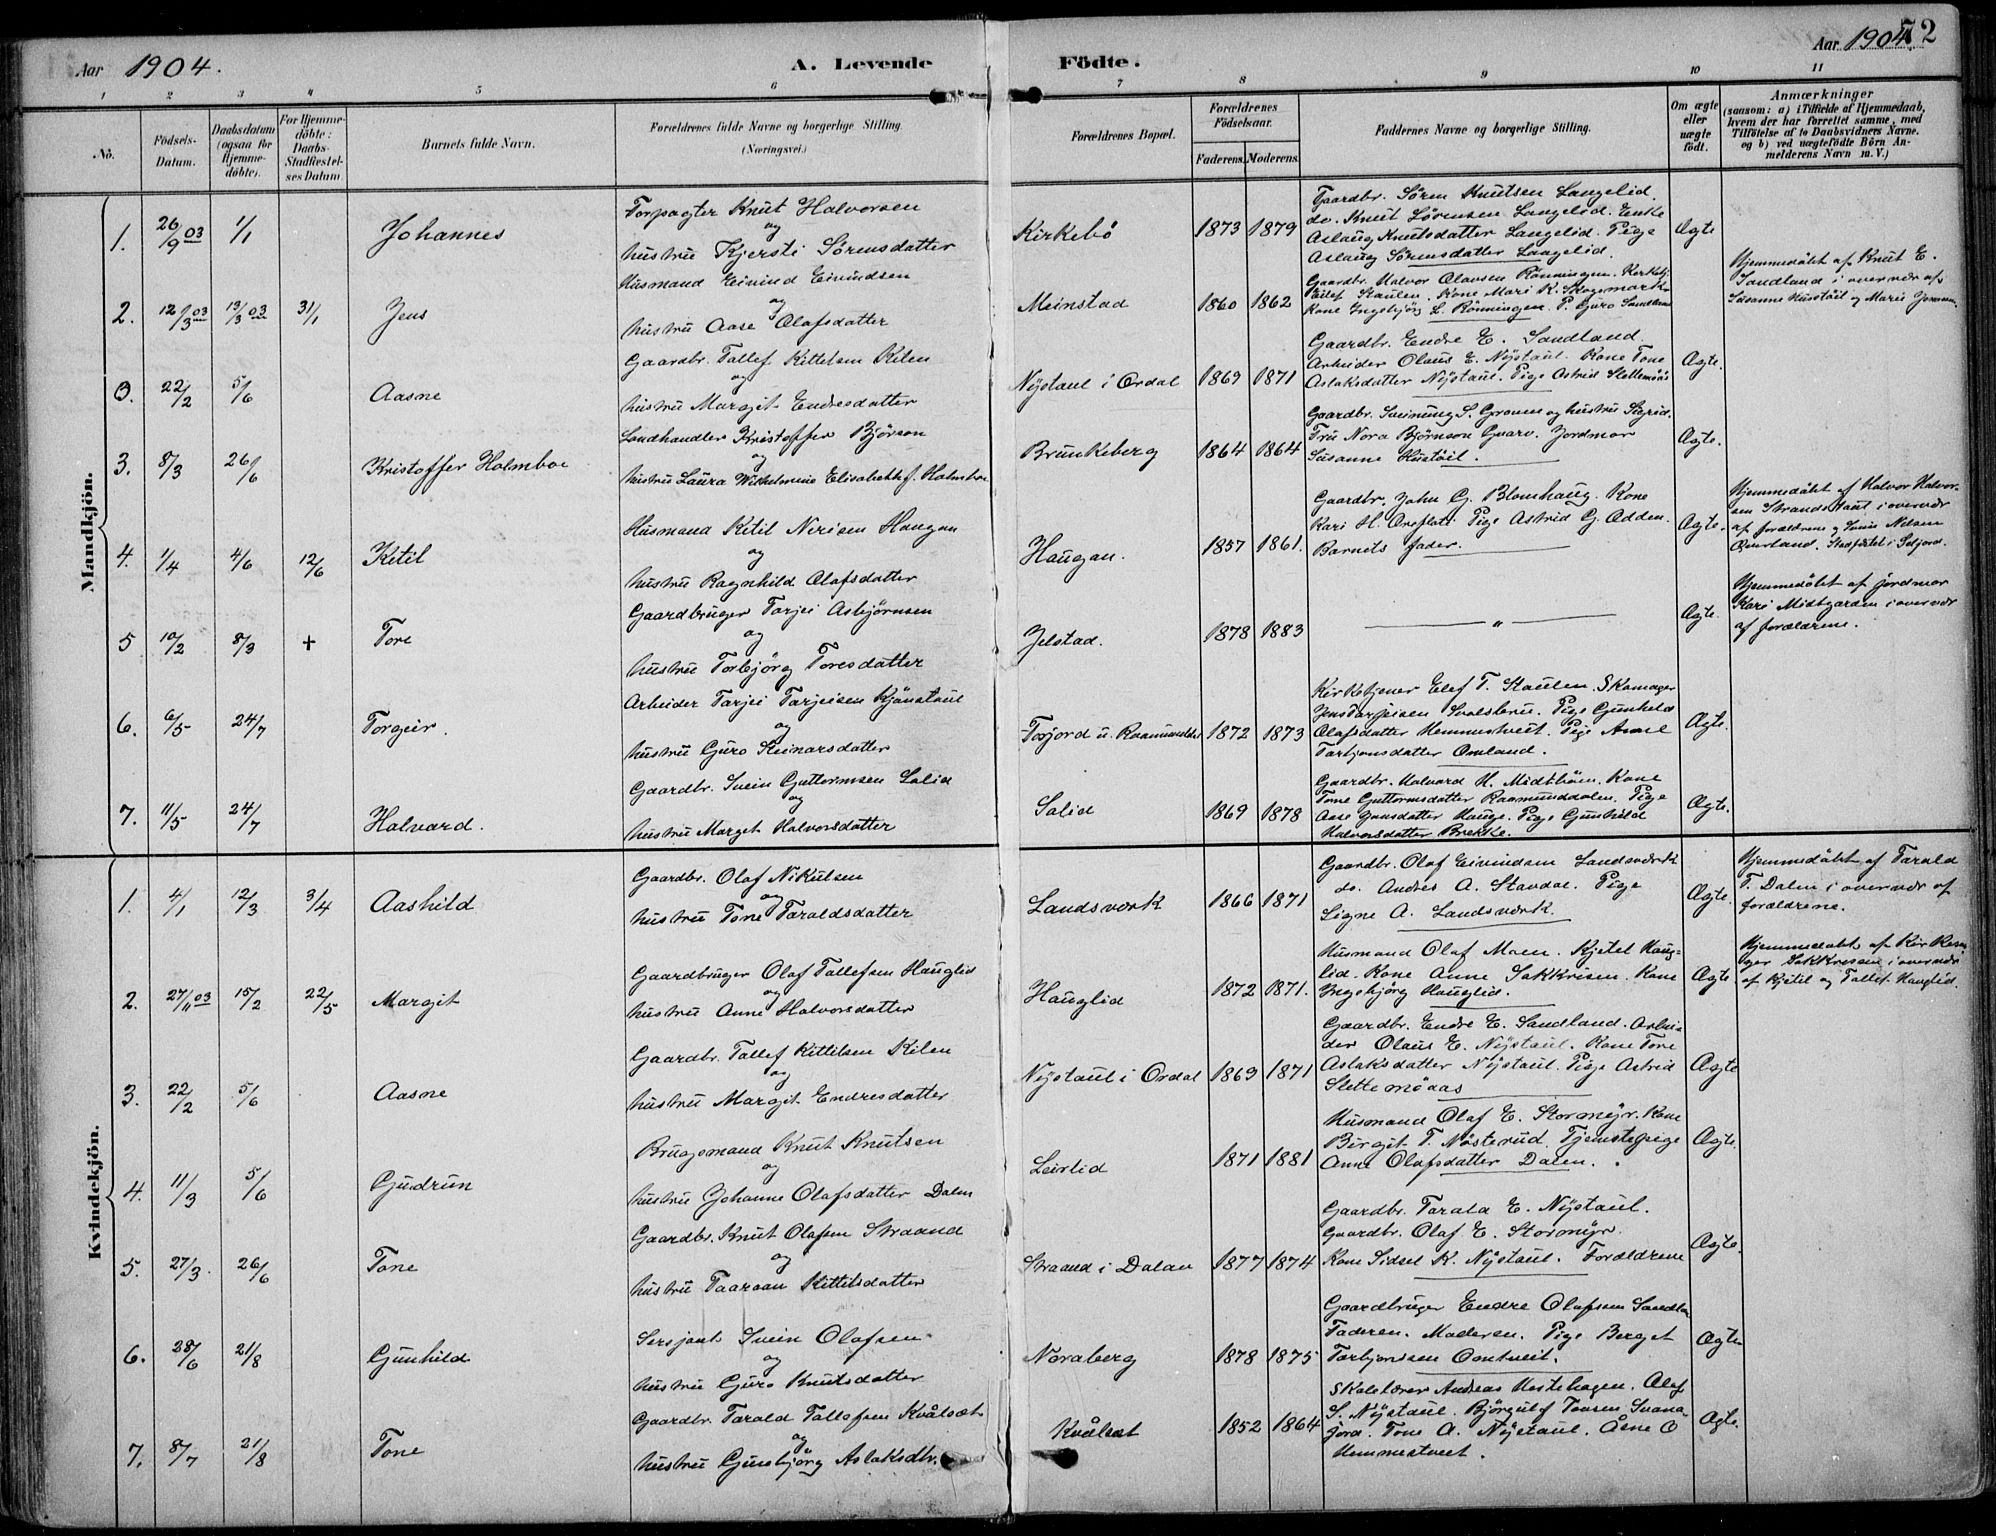 Aar 1904. A. Levende Födte. Aar 1904. 72
1 2 3 4 5 6 7 8 9 10 11
No. Födsels-Datum. Daabsdatum (ogsaa for Hjemme-döbte). For Hjemme-döbte: Daabs-Stadfæstel-ses Datum. Barnets fulde Navn. Forældrenes fulde Navne og borgerlige Stilling. (Næringsvei.) Forældrenes Bopæl. Forældrenes Födselsaar. Faderens. Moderens. Faddernes Navne og borgerlige Stilling. Om ægte eller uægte födt. Anmærkninger (saasom: a) i Tilfælde af Hjemmedaab, hvem der har forrettet samme, med Tilföielse af to Daabsvidners Navne, og b) ved uægtefödte Börn An-melderens Navn m. V.)
Mandkjön.
1. 26/9 03 1/1 Johannes
Torpagter Knut Halvorsen
og
hustru Kjersti Sörensdatter
Kirkebö 1873 1879
Gaardbr. Sören Knutsen Langelid.
do. Knut Sörensen Langelid. Enke
Aslaug Knutsdatter Langelid. Pige
Aslaug Sörensdatter Langelid.
Ægte
2. 12/3 03 13/3 03 31/1 Jens
Husmand Eivind Eivindsen
og
hustru Aase Olafsdatter
Meinstad 1860 1862
Gaardbr. Halvor Olavsen Rönningen. Kirketj.
Eilef Staulen. Kone Mari K. Skogmark
Kone Ingebjörg L. Rönningen. P. Guro Sandland
Hjemmedöbt af Knut E.
Sandland i overvær af
Susanne Hustöil og Marie Jensen
0. 22/2 5/6 Aasne
Gaardbr. Tallef Kittilsen Kilen
og
hustru Margit Endresdatter
Nÿstaul i Ordal 1869 1871
Gaardbr. Endre E. Sandland.
Arbeider Olaus E. Nÿstaul. Kone Tone
Aslaksdatter Nÿstaul. Pige Astrid Slettemöas
Ægte.
3. 8/3 26/6 Kristoffer Holmboe
Landhandler Kristoffer Björnson
og
hustru Laura Wilhelmine Elisabeth f. Holmboe
Brunkeberg 1864 1864
Gaardbr. Sveinung S. Groven og hustru Sigrid.
Fru Nora Björnson Gvarv. Jordmor
Susanne Hustöil.
Ægte.
4. 1/4 4/6 12/6 Kitil
Husmand Kitil Nirisen Haugan
og
hustru Ragnhild Olafsdatter
Haugan. 1857 1861.
Gaardbr. John G. Blomhaug. Kone
Kari H. Oreflat. Pige Astrid G. Odden.
Barnets fader.
Ægte.
Hjemmedöbt af Halvor Halvor-
sen Strandstaul i overvær
af forældrene og Nelsen
Överland. Stadfæstet i Seljord.
5 10/2 8/3 + Tore
Gaardbruger Tarjei Asbjörnsen
og
hustru Torbjörg Toresdatter
Jelstad. 1878 1883
"
Ægte.
Hjemmedöbt af jordmor
Kari Midtgarden i overvær
af forældrene.
6. 6/5 24/7 Torgeir.
Arbeider Tarjei Tarjeisen Kjönstaul
og
hustru Guro Steinarsdatter
Fosjord u. Raamundda 1872 1873
Kirketjener Elef T. Staulen. Skomager
Jens Tarjeisen Svalstru. Pige Gunhild
Olafsdatter Hemmestveit. Pige Anne
Tarbjonsdatter Omland.
Ægte.
7. 11/5 24/7 Halvard.
Gaardbr. Svein Guttormsen Lolid
og
hustru Marget Halvorsdatter
Solid 1869 1878
Gaardbr. Halvard H. Midtböen. Kone
Tone Guttormsdatter Raamunddalen. Pige
Aase Jonsdatter Hauge. Pige Gunhild
Halvorsdatter Brekke.
Ægte.
Kvindekjön.
1. 4/1 12/3 3/4 Aashild
Gaardbr. Olaf Nikulsen
og
hustru Tone Taraldsdatter
Landsværk 1866 1871
Gaardbr. Olaf Eivindsen Landsværk
do. Andres A. Stavdal. Pige
Signe A. Landsværk.
Ægte.
Hjemmedöbt af Tarald
T. Dalen i overvær af
forældrene.
2. 27/11 03 15/2 22/5 Margit
Gaardbruger Olaf Tallefsen Hauglid
og
hustru Anne Halvorsdatter
Hauglid 1872 1871.
Husmand Olaf Moen. Kjetel Haug-
lid. Kone Anne Sakkrisen. Kone
Ingebjörg Hauglid.
Ægte
Hjemmedöbt af Kirkesan-
ger Sakkrissen i overvær
af Kjetil og Tallef Hauglid.
3. 22/2 5/6 Aasne
Gaardbr. Tallef Kittilsen Kilen
og
hustru Margit Endresdatter
Nÿstaul i Ordal 1869 1871
Gaardbr. Endre E. Sandland. Arbei-
der Olaus E. Nÿstaul. Kone Tone
Aslaksdatter Nÿstaul. Pige Astrid
Slettemöaas
Ægte
4. 11/3 5/6 Gudrun
Brugsmand Knut Knutsen
og
hustru Johanne Olafsdatter Dalen
Leirlid 1871 1881
Husmand Olaf E. Stormÿr. Kone
Birgit T. Nösterud. Tjenstepige
Anne Olafsdatter Dalen.
Ægte.
5. 27/3. 26/6 Tone
Gaardbr. Knut Olafsen Straand
og
hustru Taaraan Kittilsdatter
Straand i Dalen 1877 1874
Gaardbr. Tarald E. Nÿstaul.
Gaardbr. Olaf E. Stormÿr.
Kone Sidsel K. Nÿstaul. Forældrene
Ægte.
6. 28/6 21/8 Gunhild
Sersjant Svein Olafsen
og
hustru Guro Knutsdatter
Noraberg 1878 1875
Gaardbruger Endre Olafsen Sandla
Faderen. Moderen. Pige Berget
Tarbjonsen Omtveit.
Ægte
7. 8/7 21/8 Tone
Gaardbr. Tarald Tallefsen Kvålsæt
og
hustru Gunbjörg Aslaksdtr.
Kvålsæt 1852 1864
Skolelærer Andreas Hostehagen. Olef
S. Nÿstaul. Björgulf Tovsen Svana-
jord. Tone A. Nÿstaul. Åsne O
Hemmestveit.
Ægte.